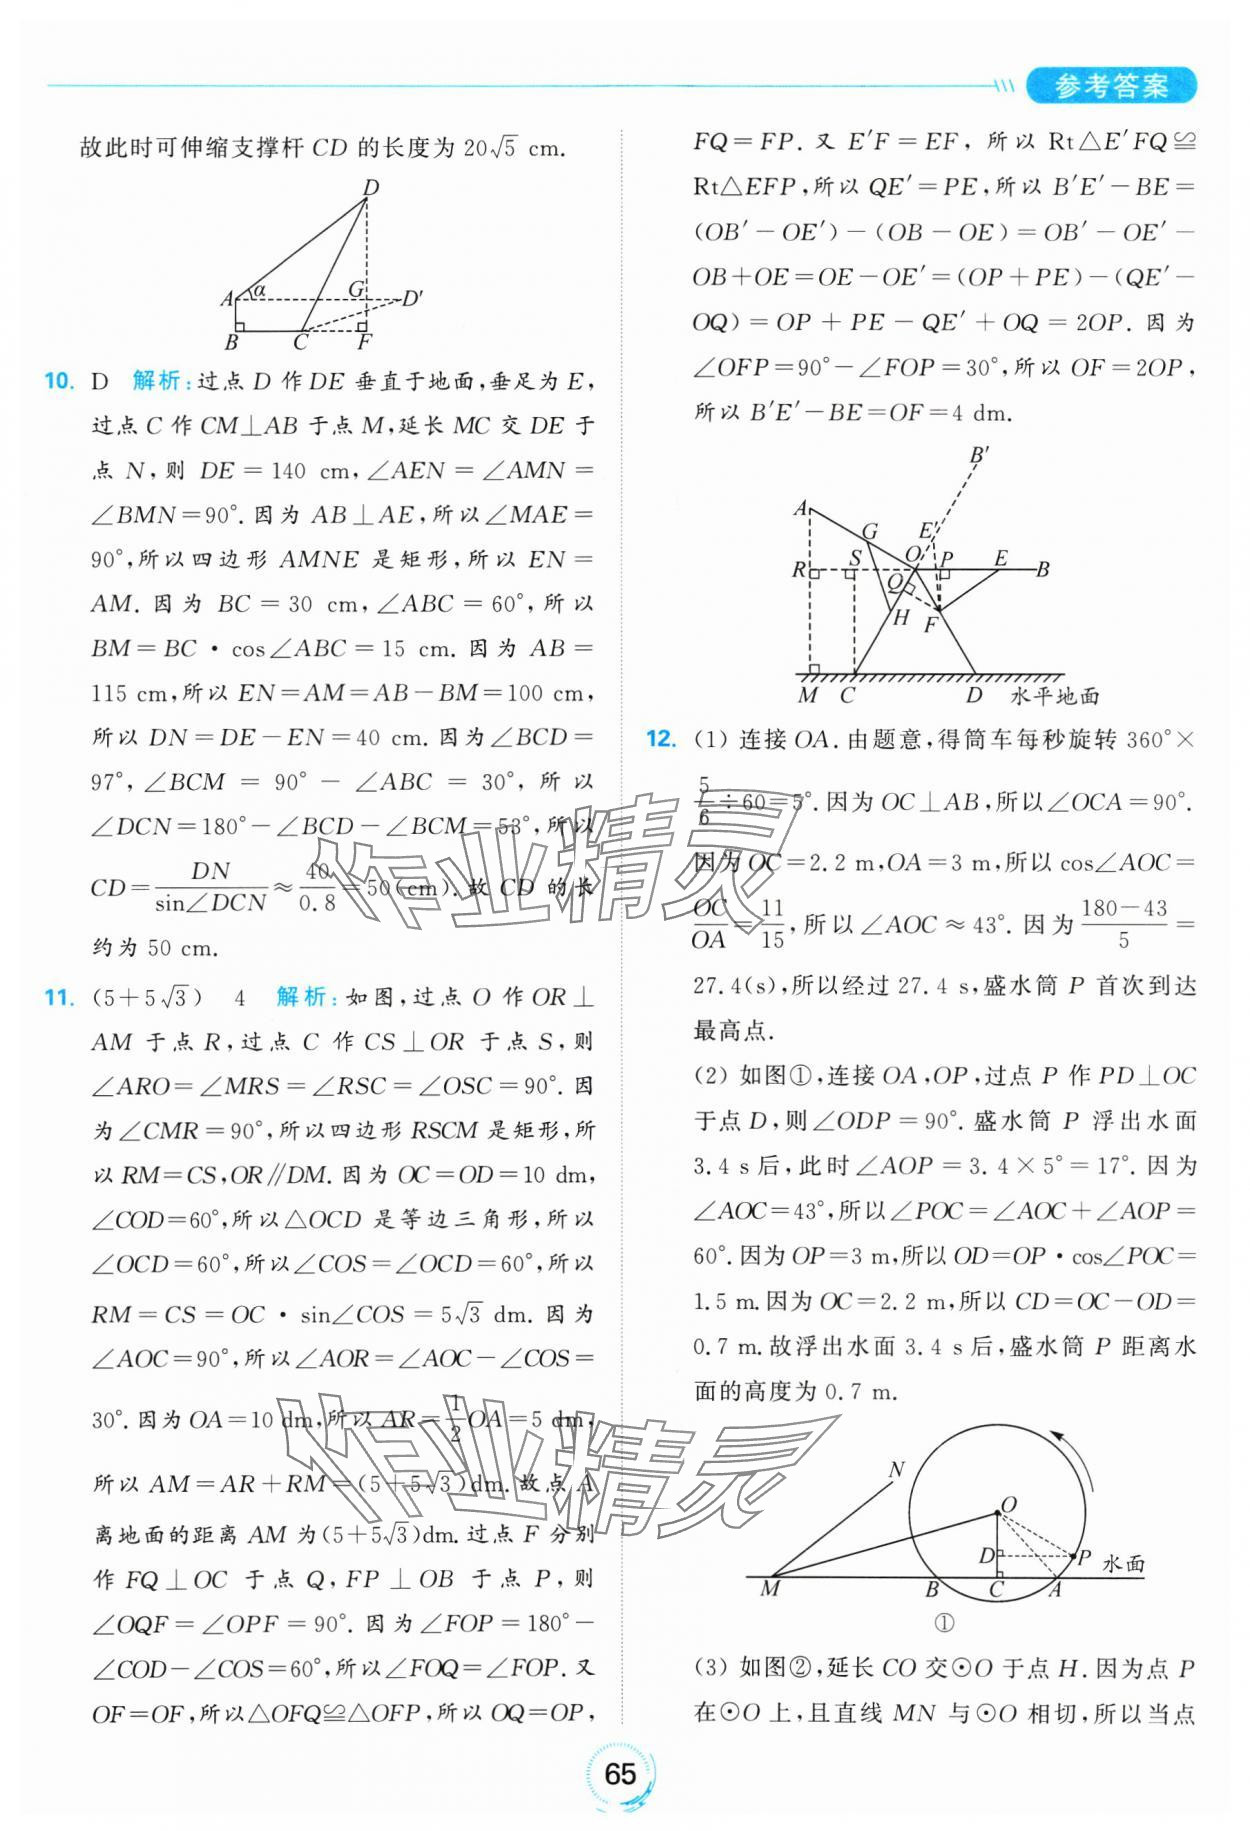 参考答案
故此时可伸缩支撑杆 CD 的长度为 20√5 cm.
D
A α G D′
B C F
10. D 解析:过点 D 作 DE 垂直于地面,垂足为 E,
过点 C 作 CM⊥AB 于点 M,延长 MC 交 DE 于
点 N,则 DE=140 cm,∠AEN=∠AMN=
∠BMN=90°.因为 AB⊥AE,所以∠MAE=
90°,所以四边形 AMNE 是矩形,所以 EN=
AM.因为 BC=30 cm,∠ABC=60°,所以
BM=BC·cos∠ABC=15 cm.因为 AB=
115 cm,所以 EN=AM=AB-BM=100 cm,
所以 DN=DE-EN=40 cm.因为∠BCD=
97°,∠BCM=90°-∠ABC=30°,所以
∠DCN=180°-∠BCD-∠BCM=53°,所以
CD=DN/sin∠DCN≈40/0.8=50(cm).故 CD 的长
约为 50 cm.
11. (5+5√3) 4 解析:如图,过点 O 作 OR⊥
AM 于点 R,过点 C 作 CS⊥OR 于点 S,则
∠ARO=∠MRS=∠RSC=∠OSC=90°.因
为∠CMR=90°,所以四边形 RSCM 是矩形,所
以 RM=CS,OR∥DM.因为 OC=OD=10 dm,
∠COD=60°,所以△OCD 是等边三角形,所以
∠OCD=60°,所以∠COS=∠OCD=60°,所以
RM=CS=OC·sin∠COS=5√3 dm.因为
∠AOC=90°,所以∠AOR=∠AOC-∠COS=
30°.因为 OA=10 dm,所以 AR=1/2OA=5 dm,
所以 AM=AR+RM=(5+5√3)dm.故点 A
离地面的距离 AM 为(5+5√3)dm.过点 F 分别
作 FQ⊥OC 于点 Q,FP⊥OB 于点 P,则
∠OQF=∠OPF=90°.因为∠FOP=180°-
∠COD-∠COS=60°,所以∠FOQ=∠FOP.又
OF=OF,所以△OFQ≌△OFP,所以 OQ=OP,
FQ=FP.又 E′F=EF,所以 Rt△E′FQ≌
Rt△EFP,所以 QE′=PE,所以 B′E′-BE=
(OB′-OE′)-(OB-OE)=OB′-OE′-
OB+OE=OE-OE′=(OP+PE)-(QE′-
OQ)=OP+PE-QE′+OQ=2OP.因为
∠OFP=90°-∠FOP=30°,所以 OF=2OP,
所以 B′E′-BE=OF=4 dm.
B′
A G E′
R S O P E B
Q H F
M C D 水平地面
12. (1) 连接 OA.由题意,得筒车每秒旋转 360°×
5/6÷60=5°.因为 OC⊥AB,所以∠OCA=90°.
因为 OC=2.2 m,OA=3 m,所以 cos∠AOC=
OC/OA=11/15,所以∠AOC≈43°.因为(180-43)/5=
27.4(s),所以经过 27.4 s,盛水筒 P 首次到达
最高点.
(2) 如图①,连接 OA,OP,过点 P 作 PD⊥OC
于点 D,则∠ODP=90°.盛水筒 P 浮出水面
3.4 s后,此时∠AOP=3.4×5°=17°.因为
∠AOC=43°,所以∠POC=∠AOC+∠AOP=
60°.因为 OP=3 m,所以 OD=OP·cos∠POC=
1.5 m.因为 OC=2.2 m,所以 CD=OC-OD=
0.7 m.故浮出水面 3.4 s 后,盛水筒 P 距离水
面的高度为 0.7 m.
N O
D P 水面
M B C A
①
(3) 如图②,延长 CO 交⊙O 于点 H.因为点 P
在⊙O 上,且直线 MN 与⊙O 相切,所以当点
65
作业精灵
作业精灵